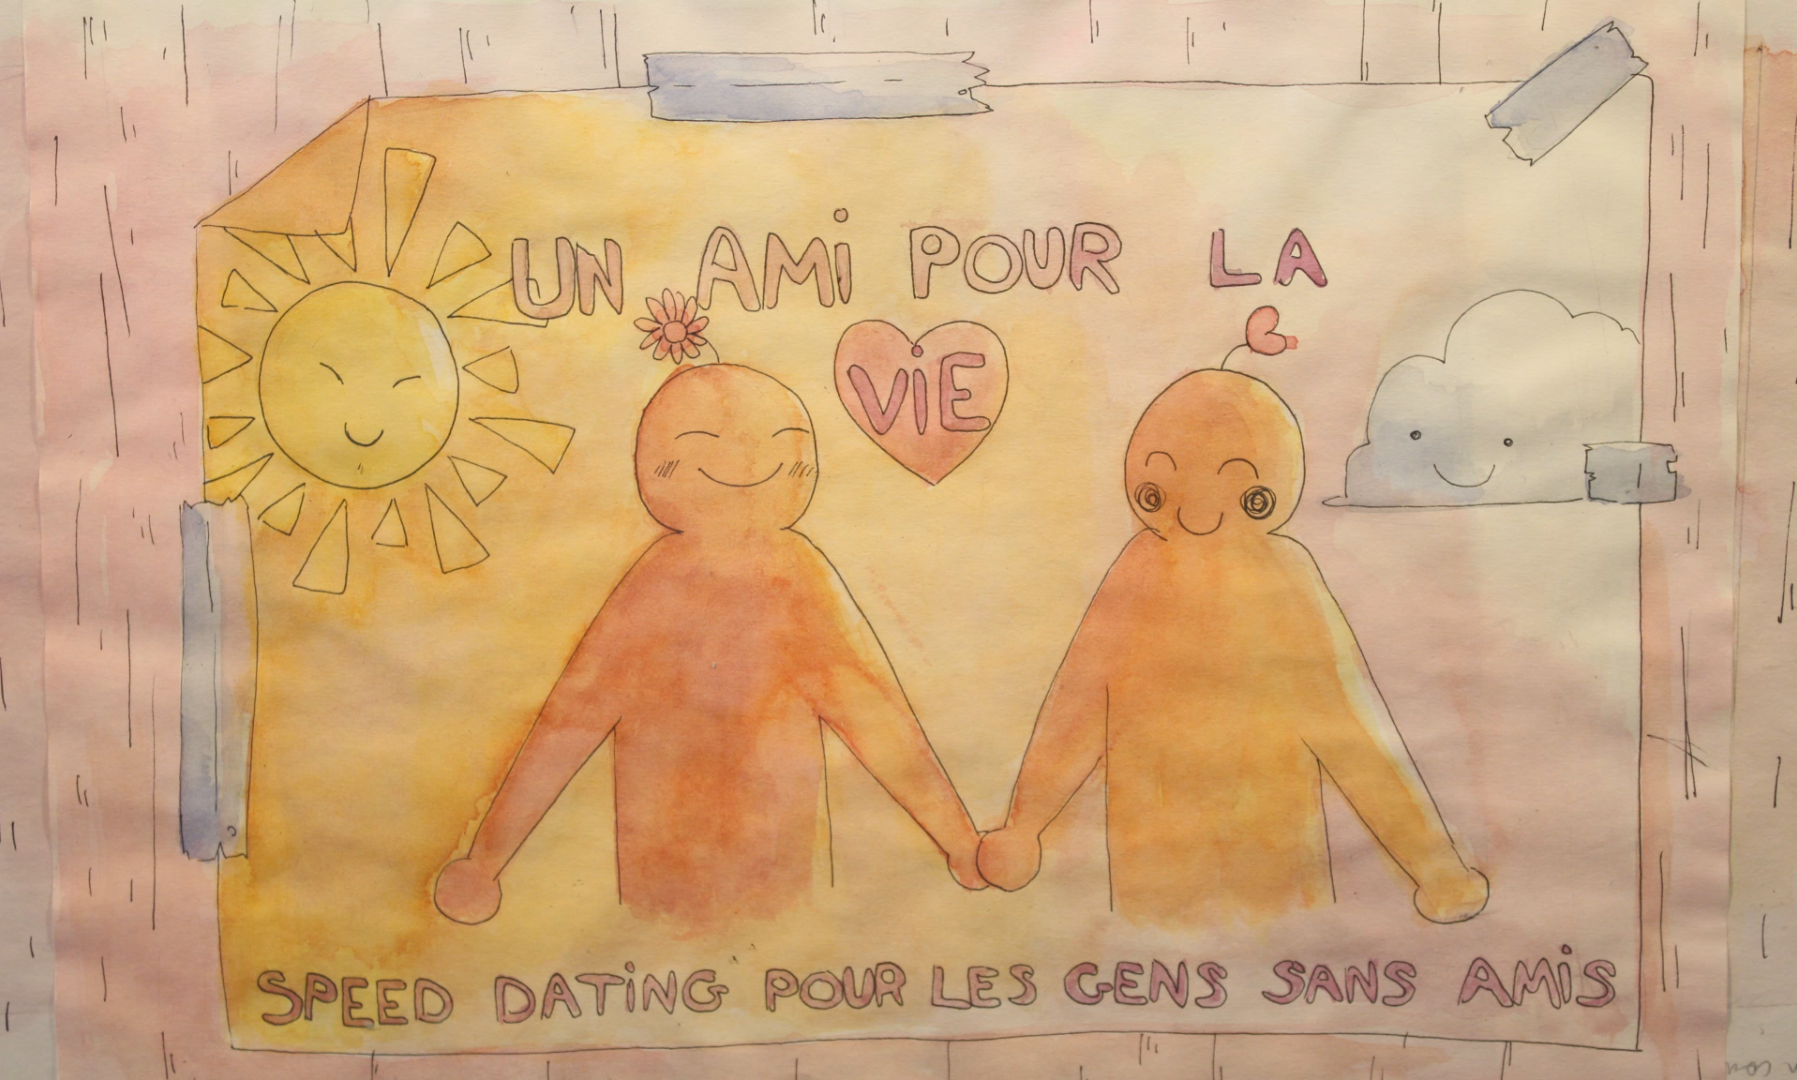 UN AMi POUR LA
ViE
SPEED DATiNG POUR LES GENS SANS AMiS